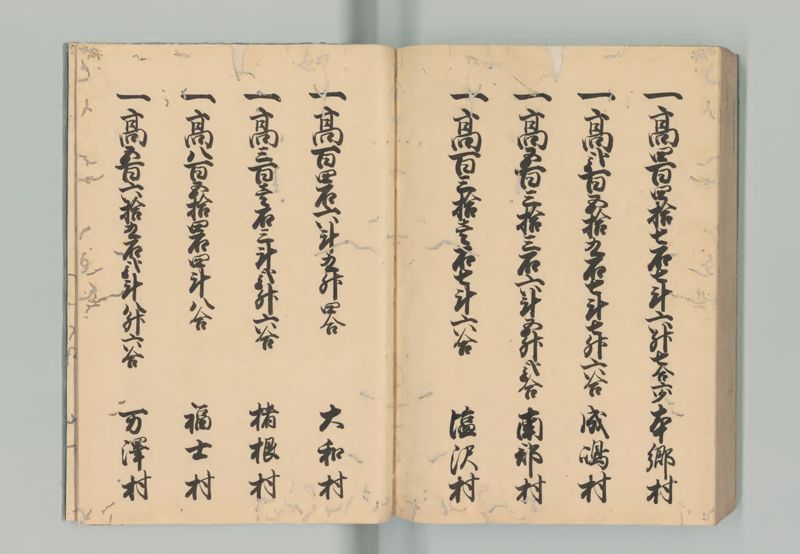 一高四百四拾七石七斗六升七合六夕 本郷村
一高弐百五拾五石七斗七升六合 成嶋村
一高五百三拾三石六斗五升弐合 南部村
一高百三拾壱石七斗六合 塩沢村
一高百四石六斗五升四合 大和村
一高三百壱石三斗弐升六合 楮根村
一高八百五拾四石四斗八合 福士村
一高五百六拾五石弐斗八升六合 万澤村